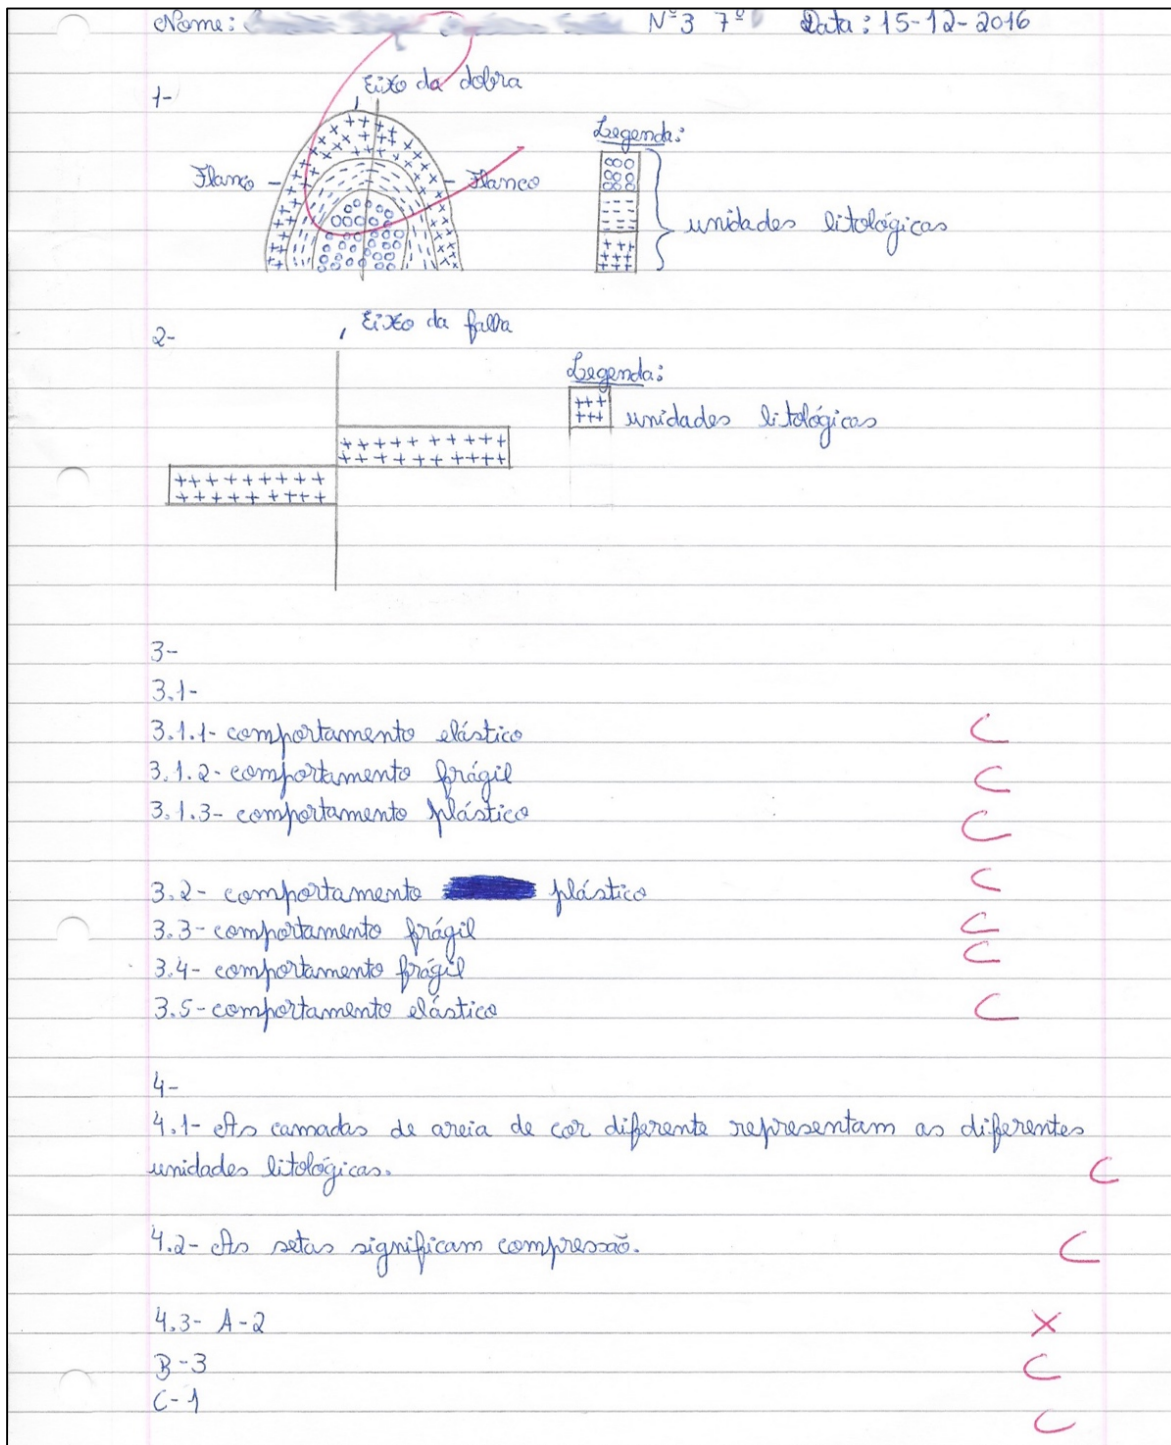 Nome: Nº3 7º Data: 15-12-2016
1-
Eixo da dobra
Legenda:
Flanco
Flanco
unidades litológicas
2-
Eixo da falha
Legenda:
unidades litológicas
3-
3.1-
3.1.1- comportamento elástico C
3.1.2- comportamento frágil C
3.1.3- comportamento plástico C
3.2- comportamento plástico C
3.3- comportamento frágil C
3.4- comportamento frágil C
3.5- comportamento elástico C
4-
4.1- As camadas de areia de cor diferente representam as diferentes
unidades litológicas. C
4.2- As setas significam compressão. C
4.3- A-2 X
B-3 C
C-1 C